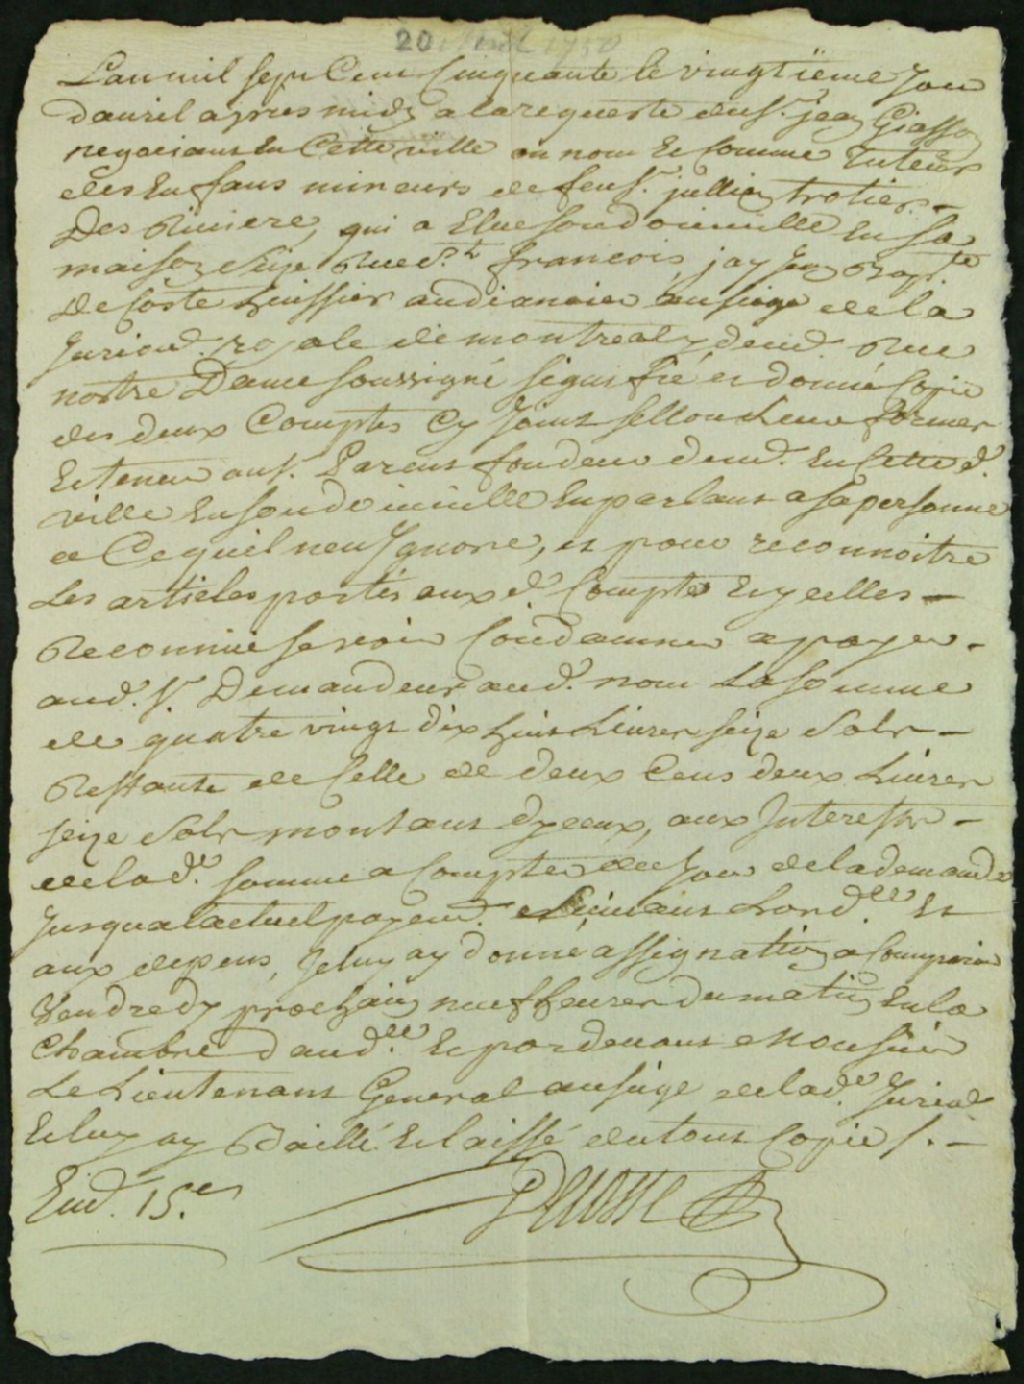 20 Avril 1750
L'an mil sept Cent Cinquante le vingtieme Jour
davril apres midy a la requeste du s.r jean Giasson
negociant En Cette ville au nom Et Comme Tuteur
des Enfans mineurs de feu s.r jullien trotier
Des Riviere, qui a Elue son domicille En sa
maison size Rue s.t francois, jay Jean Bap.te
Decoste huissier audiancier au siege de la
Jurisd. royale de montreal y demt. Rue
nostre Dame soussigné signiffié et donné Copie
des deux Comptes Cy Joint sellon Leur former
Et teneur au s. Parent fondeur demt. En Cette d.
ville En son domicille En parlant a sa personne
a Ce quil n'en Ignore, et pour reconnoitre
Les articles portés aux d. Comptes Et ycelles
Reconnue se voir Condamner a payer
aud. s. Demandeur aud. nom La somme
de quatre vingt dix huit Livres seize Sols
Restante de Celle de deux Cens deux Livres
seize Sols montant dyceux, aux Interest
de lad. somme a Compter du Jour de la demande
Jusqua lactuel payemt. Suivant Lord.ce Et
aux depens, Je luy ay donné assignation a Comparoir
Vendredy prochain neuf heures du matin En la
Chambre d'aud.ce Et par devant Monsieur
Le Lieutenant General au siege de lad.e Jurisd.
Et luy ay Baillé Et laissé du tout Copie s.
15.s
Decoste